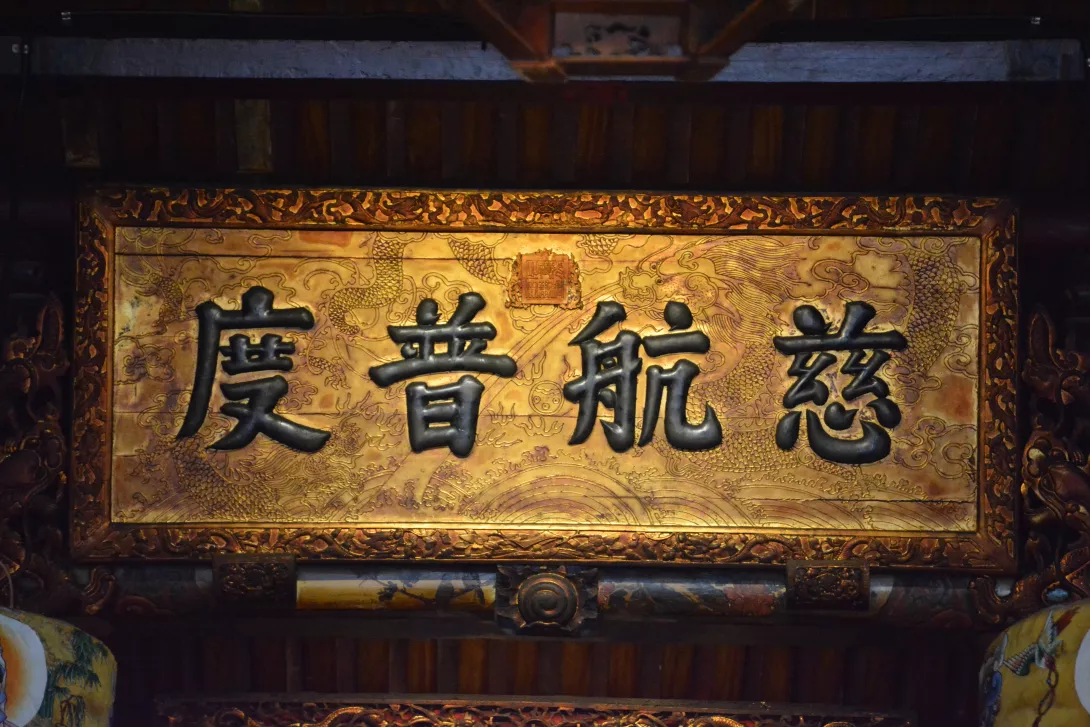 慈航普度